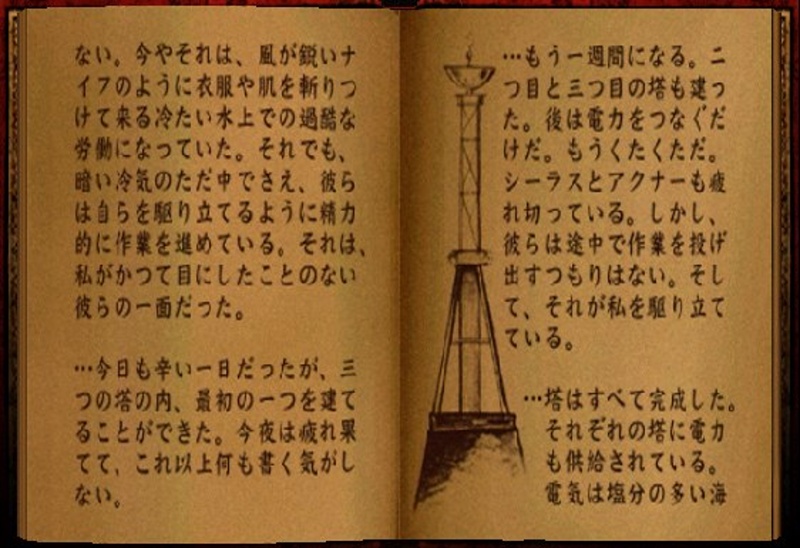 ない。今やそれは、風が鋭いナ
イフのように衣服や肌を斬りつ
けて来る冷たい水上での過酷な
労働になっていた。それでも、
暗い冷気のただ中でさえ、彼ら
は自らを駆り立てるように精力
的に作業を進めている。それは、
私がかつて目にしたことのない
彼らの一面だった。
…今日も辛い一日だったが、三
つの塔の内、最初の一つを建て
ることができた。今夜は疲れ果
てて、これ以上何も書く気がし
ない。
…もう一週間になる。二
つ目と三つ目の塔も建っ
た。後は電力をつなぐだ
けだ。もうくたくただ。
シーラスとアクナーも疲
れ切っている。しかし、
彼らは途中で作業を投げ
出すつもりはない。そし
て、それが私を駆り立て
ている。
…塔はすべて完成した。
それぞれの塔に電力
も供給されている。
電気は塩分の多い海